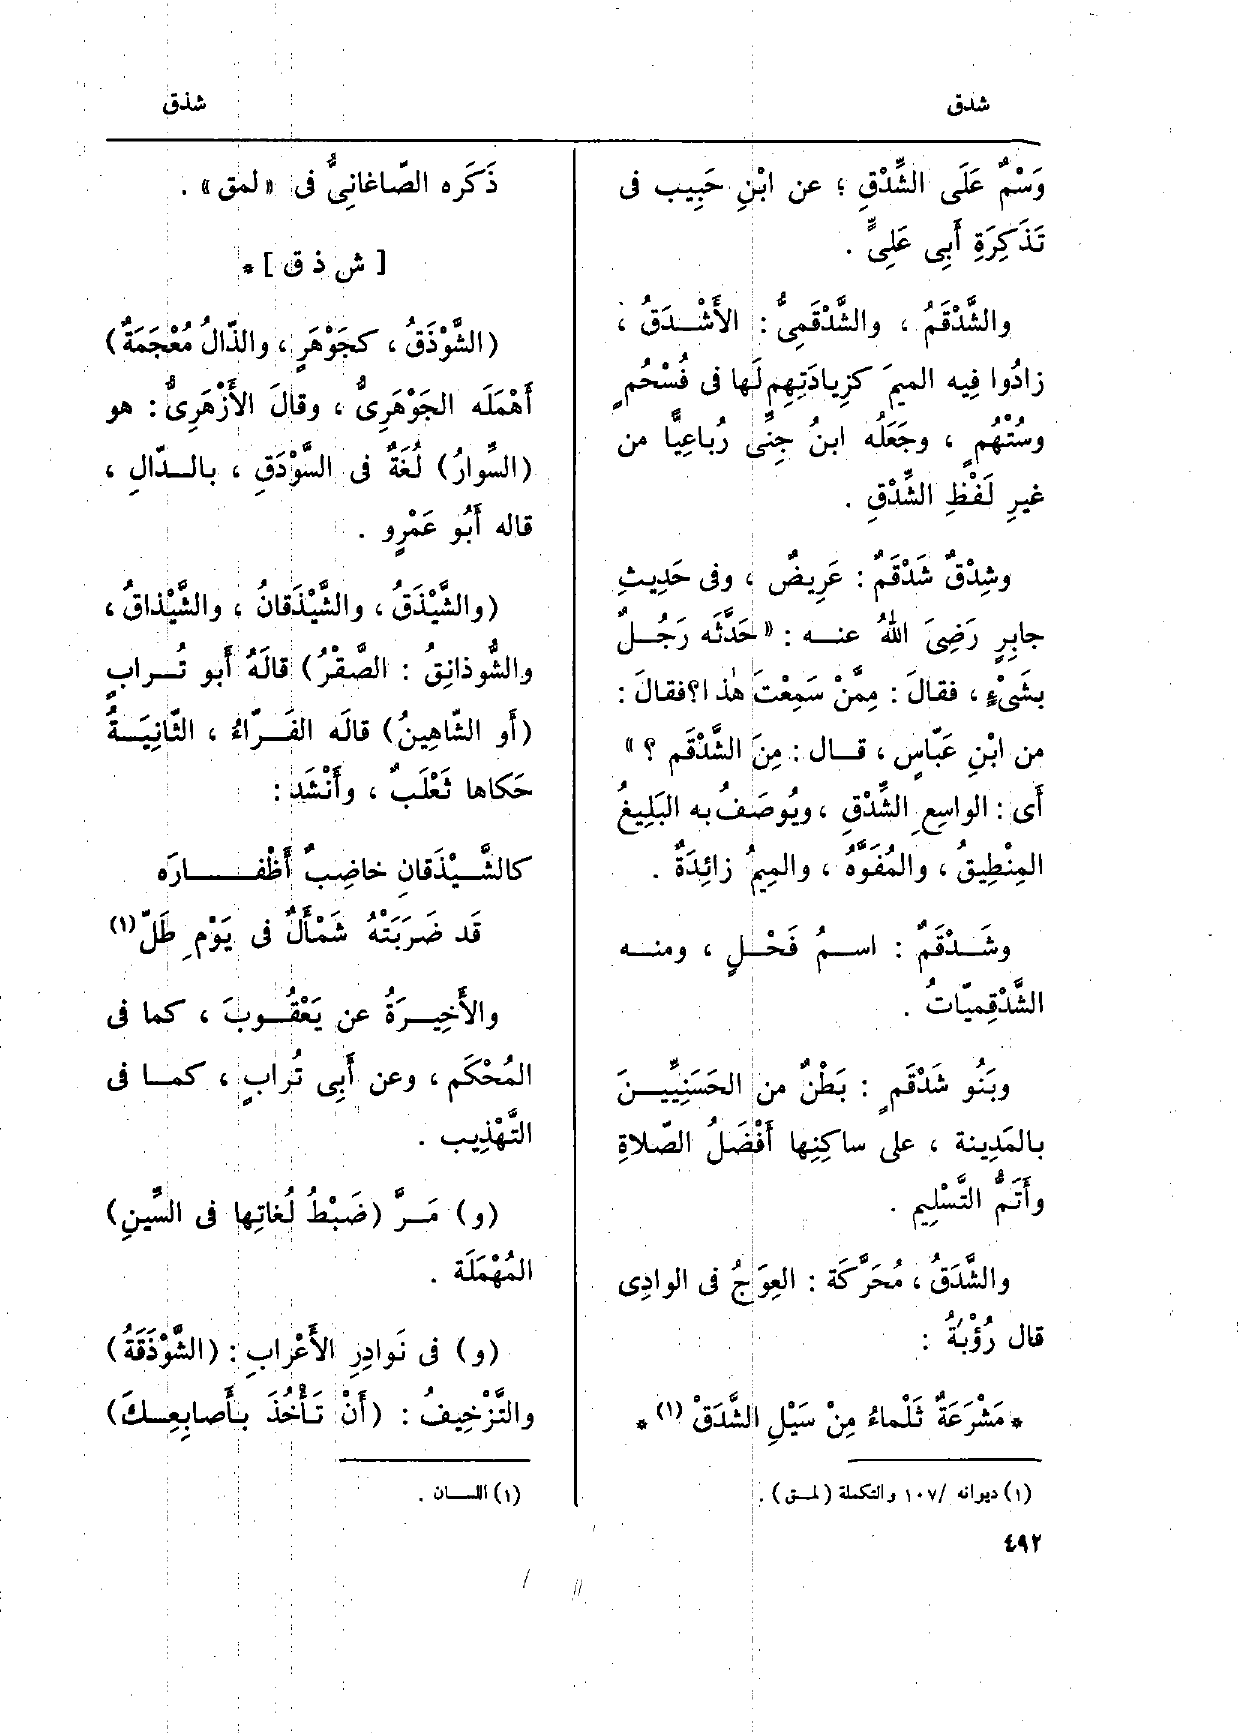 شدق
شذق
وَسْمٌ عَلَى الشِّدْقِ ؛ عن ابْنِ حَبِيب فى
تَذْكِرَةِ أَبِى عَلِىٍّ .
والشَّدْقَمُ ، والشَّدْقَمِىُّ : الأَشْـدَقُ ،
زادُوا فِيه المِيمَ كزِيادَتِهِم لَها فى فُسْحُمٍ
وسُتْهُمٍ ، وجَعَلَه ابنُ جِنِّى رُباعِيًّا من
غيرِ لَفْظِ الشِّدْقِ .
وشِدْقٌ شَدْقَمٌ : عَرِيضٌ ، وفى حَدِيثِ
جابِرٍ رَضِىَ اللهُ عنـه : « حَدَّثَه رَجُـلٌ
بِشَىْءٍ ، فقالَ : مِمَّنْ سَمِعْتَ هٰذا؟فقالَ :
من ابْنِ عَبّاسٍ ، قـال : مِنَ الشَّدْقَم ؟ »
أَى : الواسِعِ الشِّدْقِ ، ويُوصَفُ به البَلِيغُ
المِنْطِيقُ ، والمُفَوَّهُ ، والمِيمُ زائِدَةٌ .
وشَـدْقَمٌ : اسـمُ فَحْـلٍ ، ومنـه
الشَّدْقِمِيّاتُ .
وبَنُو شَدْقَمٍ : بَطْنٌ من الحَسَنِيِّيـنَ
بالمَدِينة ، على ساكِنِها أَفْضَلُ الصّلاةِ
وأَتَمُّ التَّسْلِيم .
والشَّدَقُ ، مُحَرَّكَة : العِوَجُ فى الوادِى
قال رُؤْبَةُ :
* مَشْرَعَةٌ ثَلْماءُ مِنْ سَيْلِ الشَّدَقْ (١) *
(١) ديوانه /١٠٧ والتكملة (لمـق) .
٤٩٢
ذَكَره الصّاغانِىُّ فى « لمق » .
[ ش ذ ق ] *
(الشَّوْذَقُ ، كجَوْهَرٍ ، والذّالُ مُعْجَمَةٌ)
أَهْمَلَه الجَوْهَرِىُّ ، وقالَ الأَزْهَرِىُّ : هو
(السِّوارُ) لُغَةٌ فى السَّوْذَقِ ، بالـدّالِ ،
قاله أَبُو عَمْرٍو .
(والشَّيْذَقُ ، والشَّيْذَقانُ ، والشَّيْذاقُ ،
والشُّوذانِقُ : الصَّقْرُ) قالَهُ أَبو تُـرابٍ
(أَو الشّاهِينُ) قالَه الفَـرّاءُ ، الثّانِيَـةُ
حَكاها ثَعْلَبٌ ، وأَنْشَد :
كالشَّـيْذَقانِ خاضِبٌ أَظْفـــارَه
قَد ضَرَبَتْهُ شَمْأَلٌ فى يَوْمِ طَلّ(١)
والأَخِيـرَةُ عن يَعْقُـوبَ ، كما فى
المُحْكَم ، وعن أَبِى تُرابٍ ، كمـا فى
التَّهْذِيب .
(و) مَـرَّ (ضَبْطُ لُغاتِها فى السِّينِ)
المُهْمَلَة .
(و) فى نَوادِرِ الأَعْرابِ : (الشَّوْذَقَةُ)
والتَّزْخِيفُ : (أَنْ تَـأْخُذَ بـأَصابِعِـكَ)
(١) اللسـان .